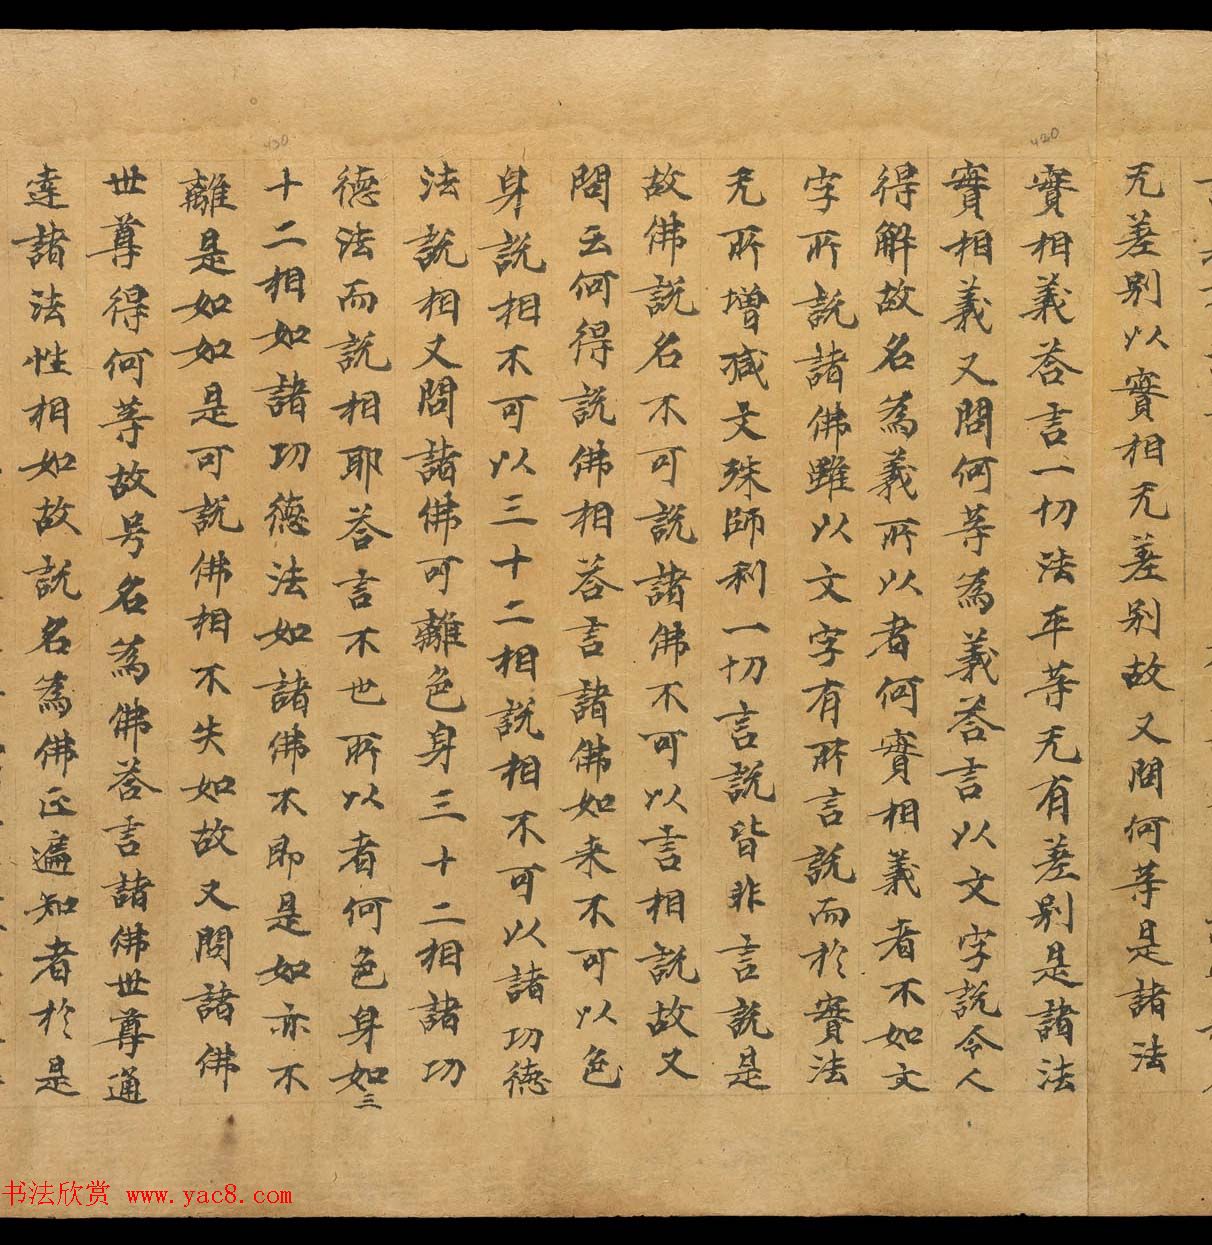 无差别以實相无差别故又問何等是諸法
420
實相義荅言一切法平等无有差别是諸法
實相義又問何等為義荅言以文字說令人
得解故名為義所以者何實相義者不如文
字所說諸佛雖以文字有所言說而於實法
无所增減文殊師利一切言說皆非言說是
故佛說名不可說諸佛不可以言相說故又
問云何得說佛相荅言諸佛如来不可以色
身說相不可以三十二相說相不可以諸功德
法說相又問諸佛可離色身三十二相諸功
德法而說相耶荅言不也所以者何色身如三
430
十二相如諸功德法如諸佛不即是如亦不
離是如如是可說佛相不失如故又問諸佛
世尊得何等故号名為佛荅言諸佛世尊通
達諸法性相如故說名為佛正遍知者於是
书法欣赏 www.yac8.com